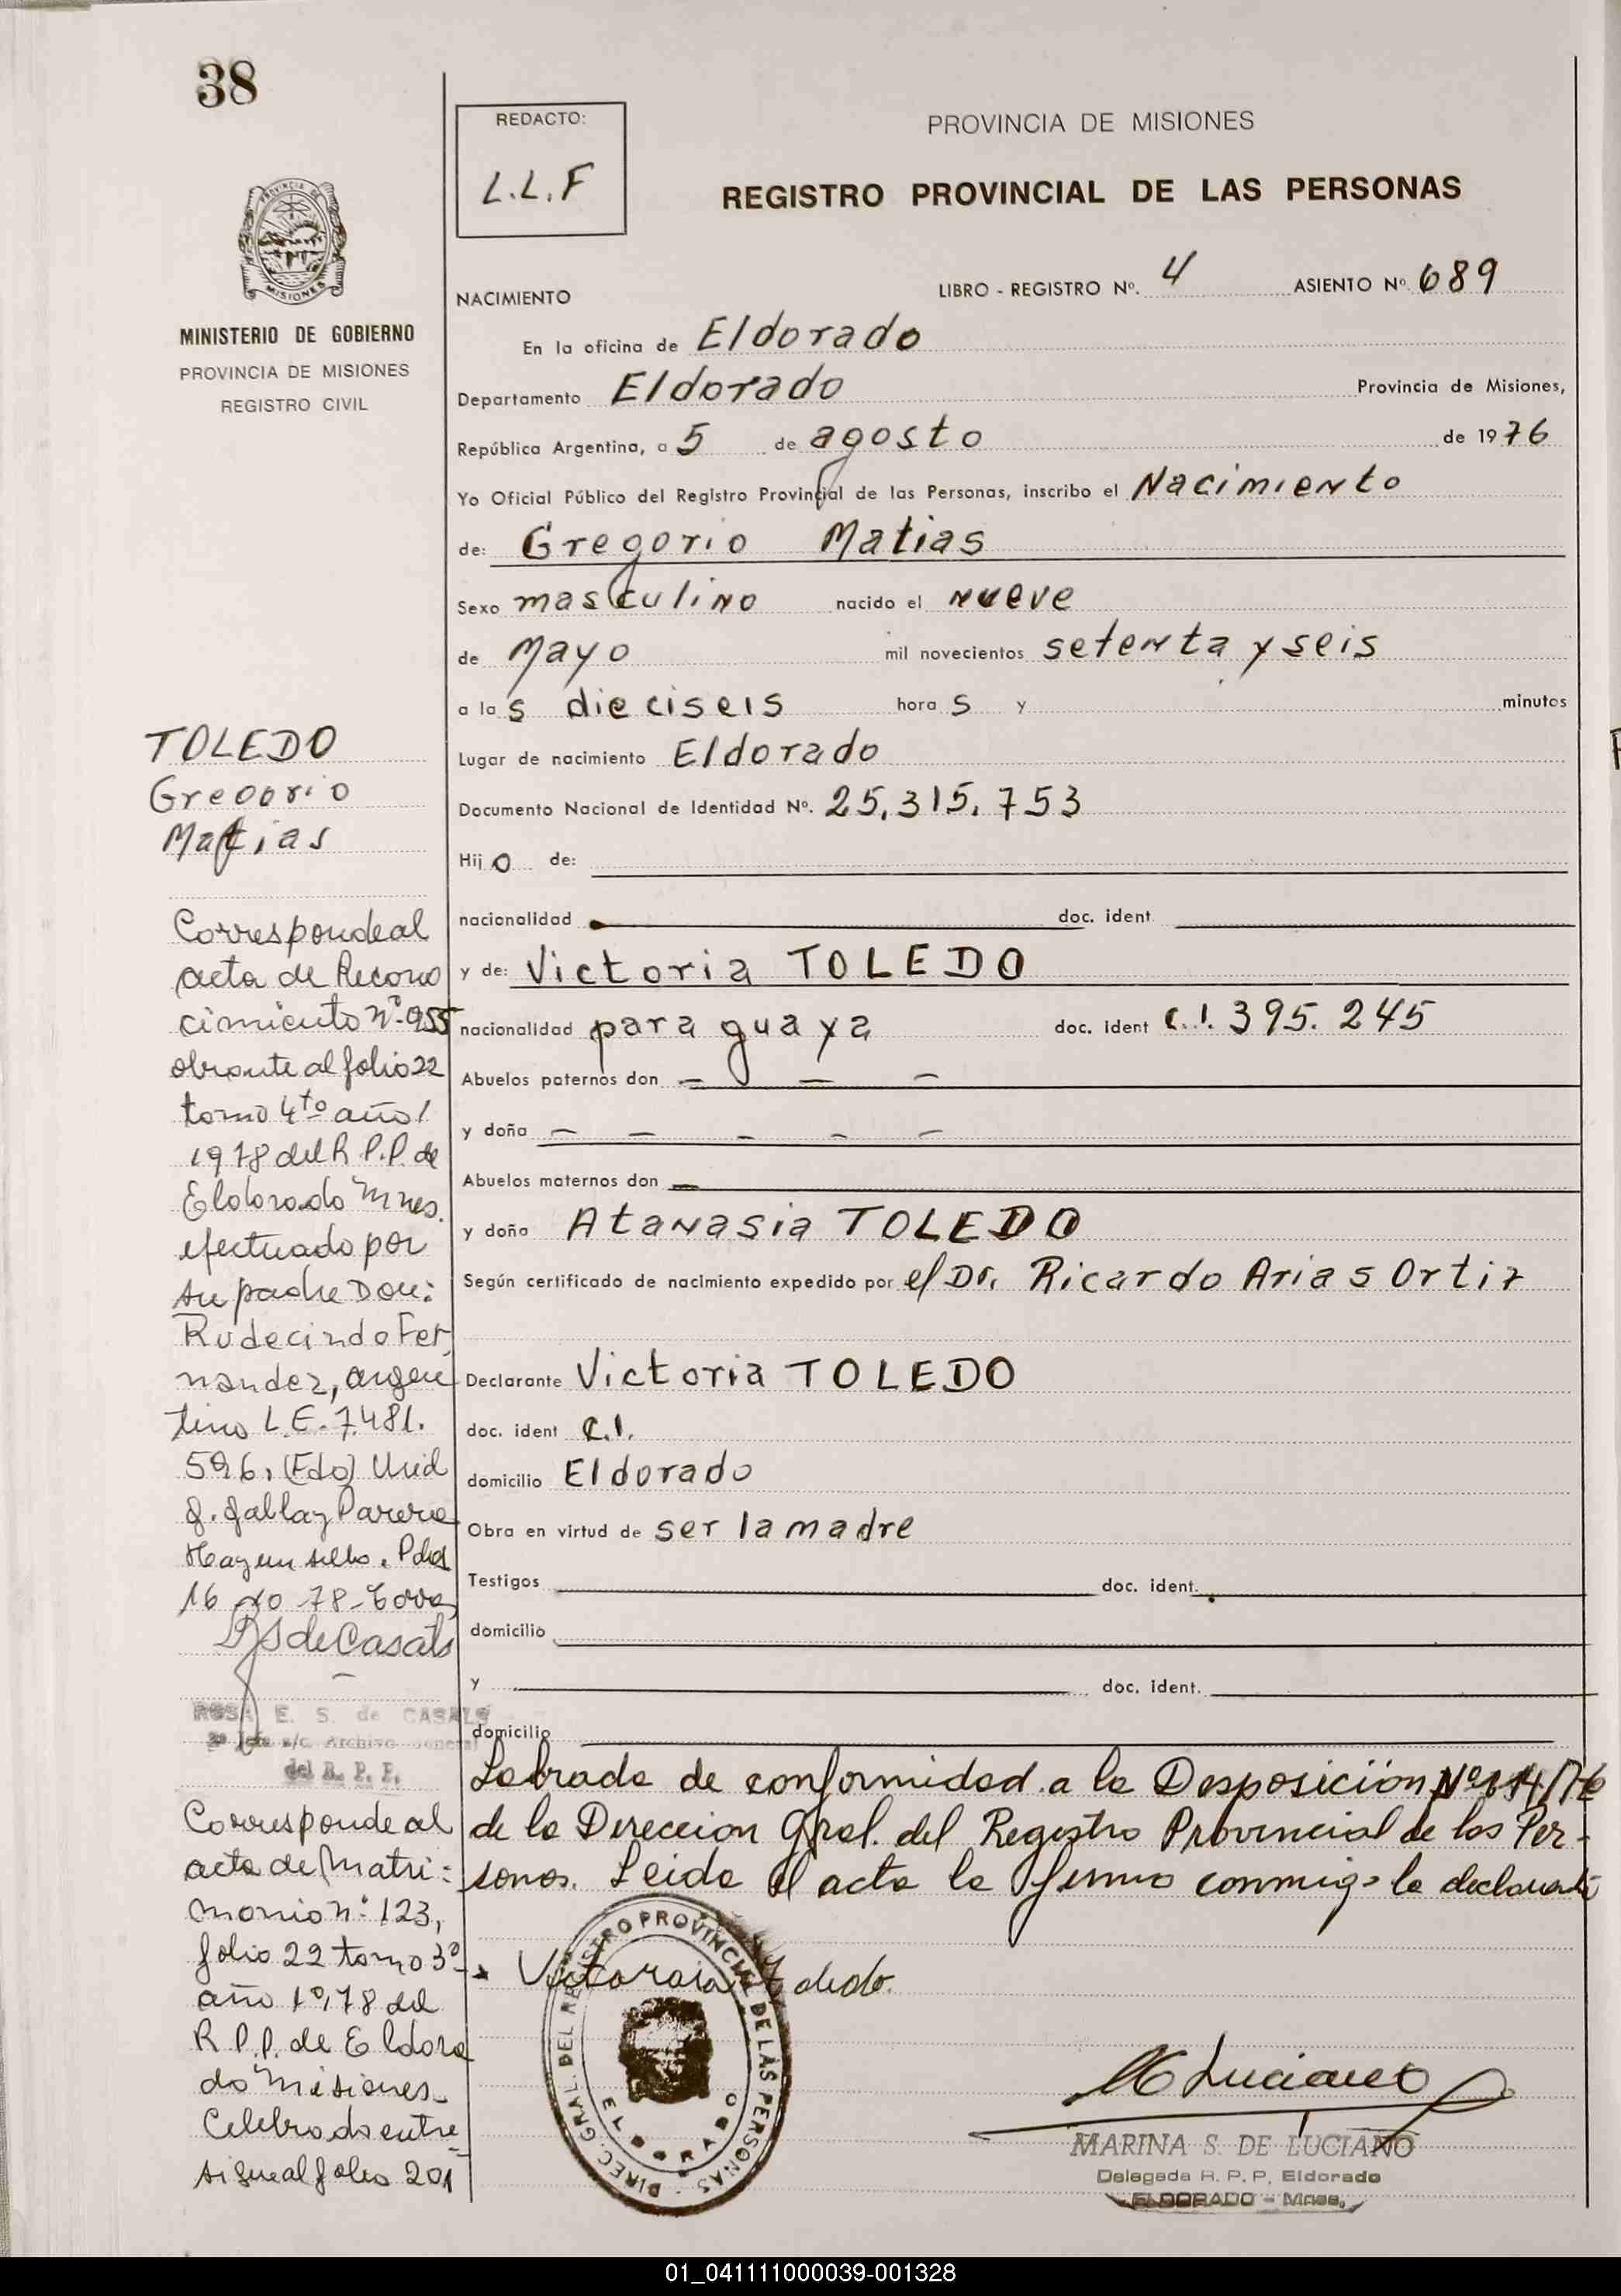 38
REDACTO:
L.L.F
PROVINCIA DE MISIONES
REGISTRO PROVINCIAL DE LAS PERSONAS
PROVINCIA DE
MISIONES
MINISTERIO DE GOBIERNO
PROVINCIA DE MISIONES
REGISTRO CIVIL
NACIMIENTO
LIBRO - REGISTRO Nº. 4 ASIENTO Nº 689
En la oficina de Eldorado
Departamento Eldorado Provincia de Misiones,
República Argentina, a 5 de agosto de 1976
Yo Oficial Público del Registro Provincial de las Personas, inscribo el Nacimiento
de: Gregorio Matias
Sexo masculino nacido el nueve
de Mayo mil novecientos setenta y seis
a las dieciseis horas y minutos
Lugar de nacimiento Eldorado
Documento Nacional de Identidad Nº. 25.315.753
Hijo de:
nacionalidad doc. ident.
y de: Victoria TOLEDO
nacionalidad paraguaya doc. ident C.I. 395.245
Abuelos paternos don — — —
y doña — — — — —
Abuelos maternos don —
y doña Atanasia TOLEDO
Según certificado de nacimiento expedido por el Dr. Ricardo Arias Ortiz
Declarante Victoria TOLEDO
doc. ident C.I.
domicilio Eldorado
Obra en virtud de ser la madre
Testigos doc. ident.
domicilio
y doc. ident.
domicilio
Labrada de conformidad a la Desposición Nº /76
de la Direccion Gral. del Registro Provincial de las Per-
sonas. Leida el acta la firmo conmigo la declarante
Victoria Toledo.
DIREC. GRAL. DEL REGISTRO PROVINCIAL DE LAS PERSONAS
ELDORADO
M Luciano
MARINA S. DE LUCIANO
Delegada R. P. P. Eldorado
ELDORADO - Mnes.
TOLEDO
Gregorio
Matias
Corresponde al
acta de Recono
cimiento nº 955
obrante al folio 22
tomo 4to año
1978 del R.P.P. de
Eldorado Mnes.
efectuado por
su padre Don:
Rudecindo Fer
nandez, argen
tino L.E. 7.481.
596. (Fdo)
Hay un sello. Pdas
16 10 78
RS de Casals
ROSA E. S. de CASALS
2º Jefe a/c. Archivo General
del R. P. P.
Corresponde al
acta de Matri=
monio nº 123,
folio 22 tomo 3º
año 1978 del
R.P.P. de Eldora
do Misiones.
Celebrado entre
sigue al folio 201
01_041111000039-001328